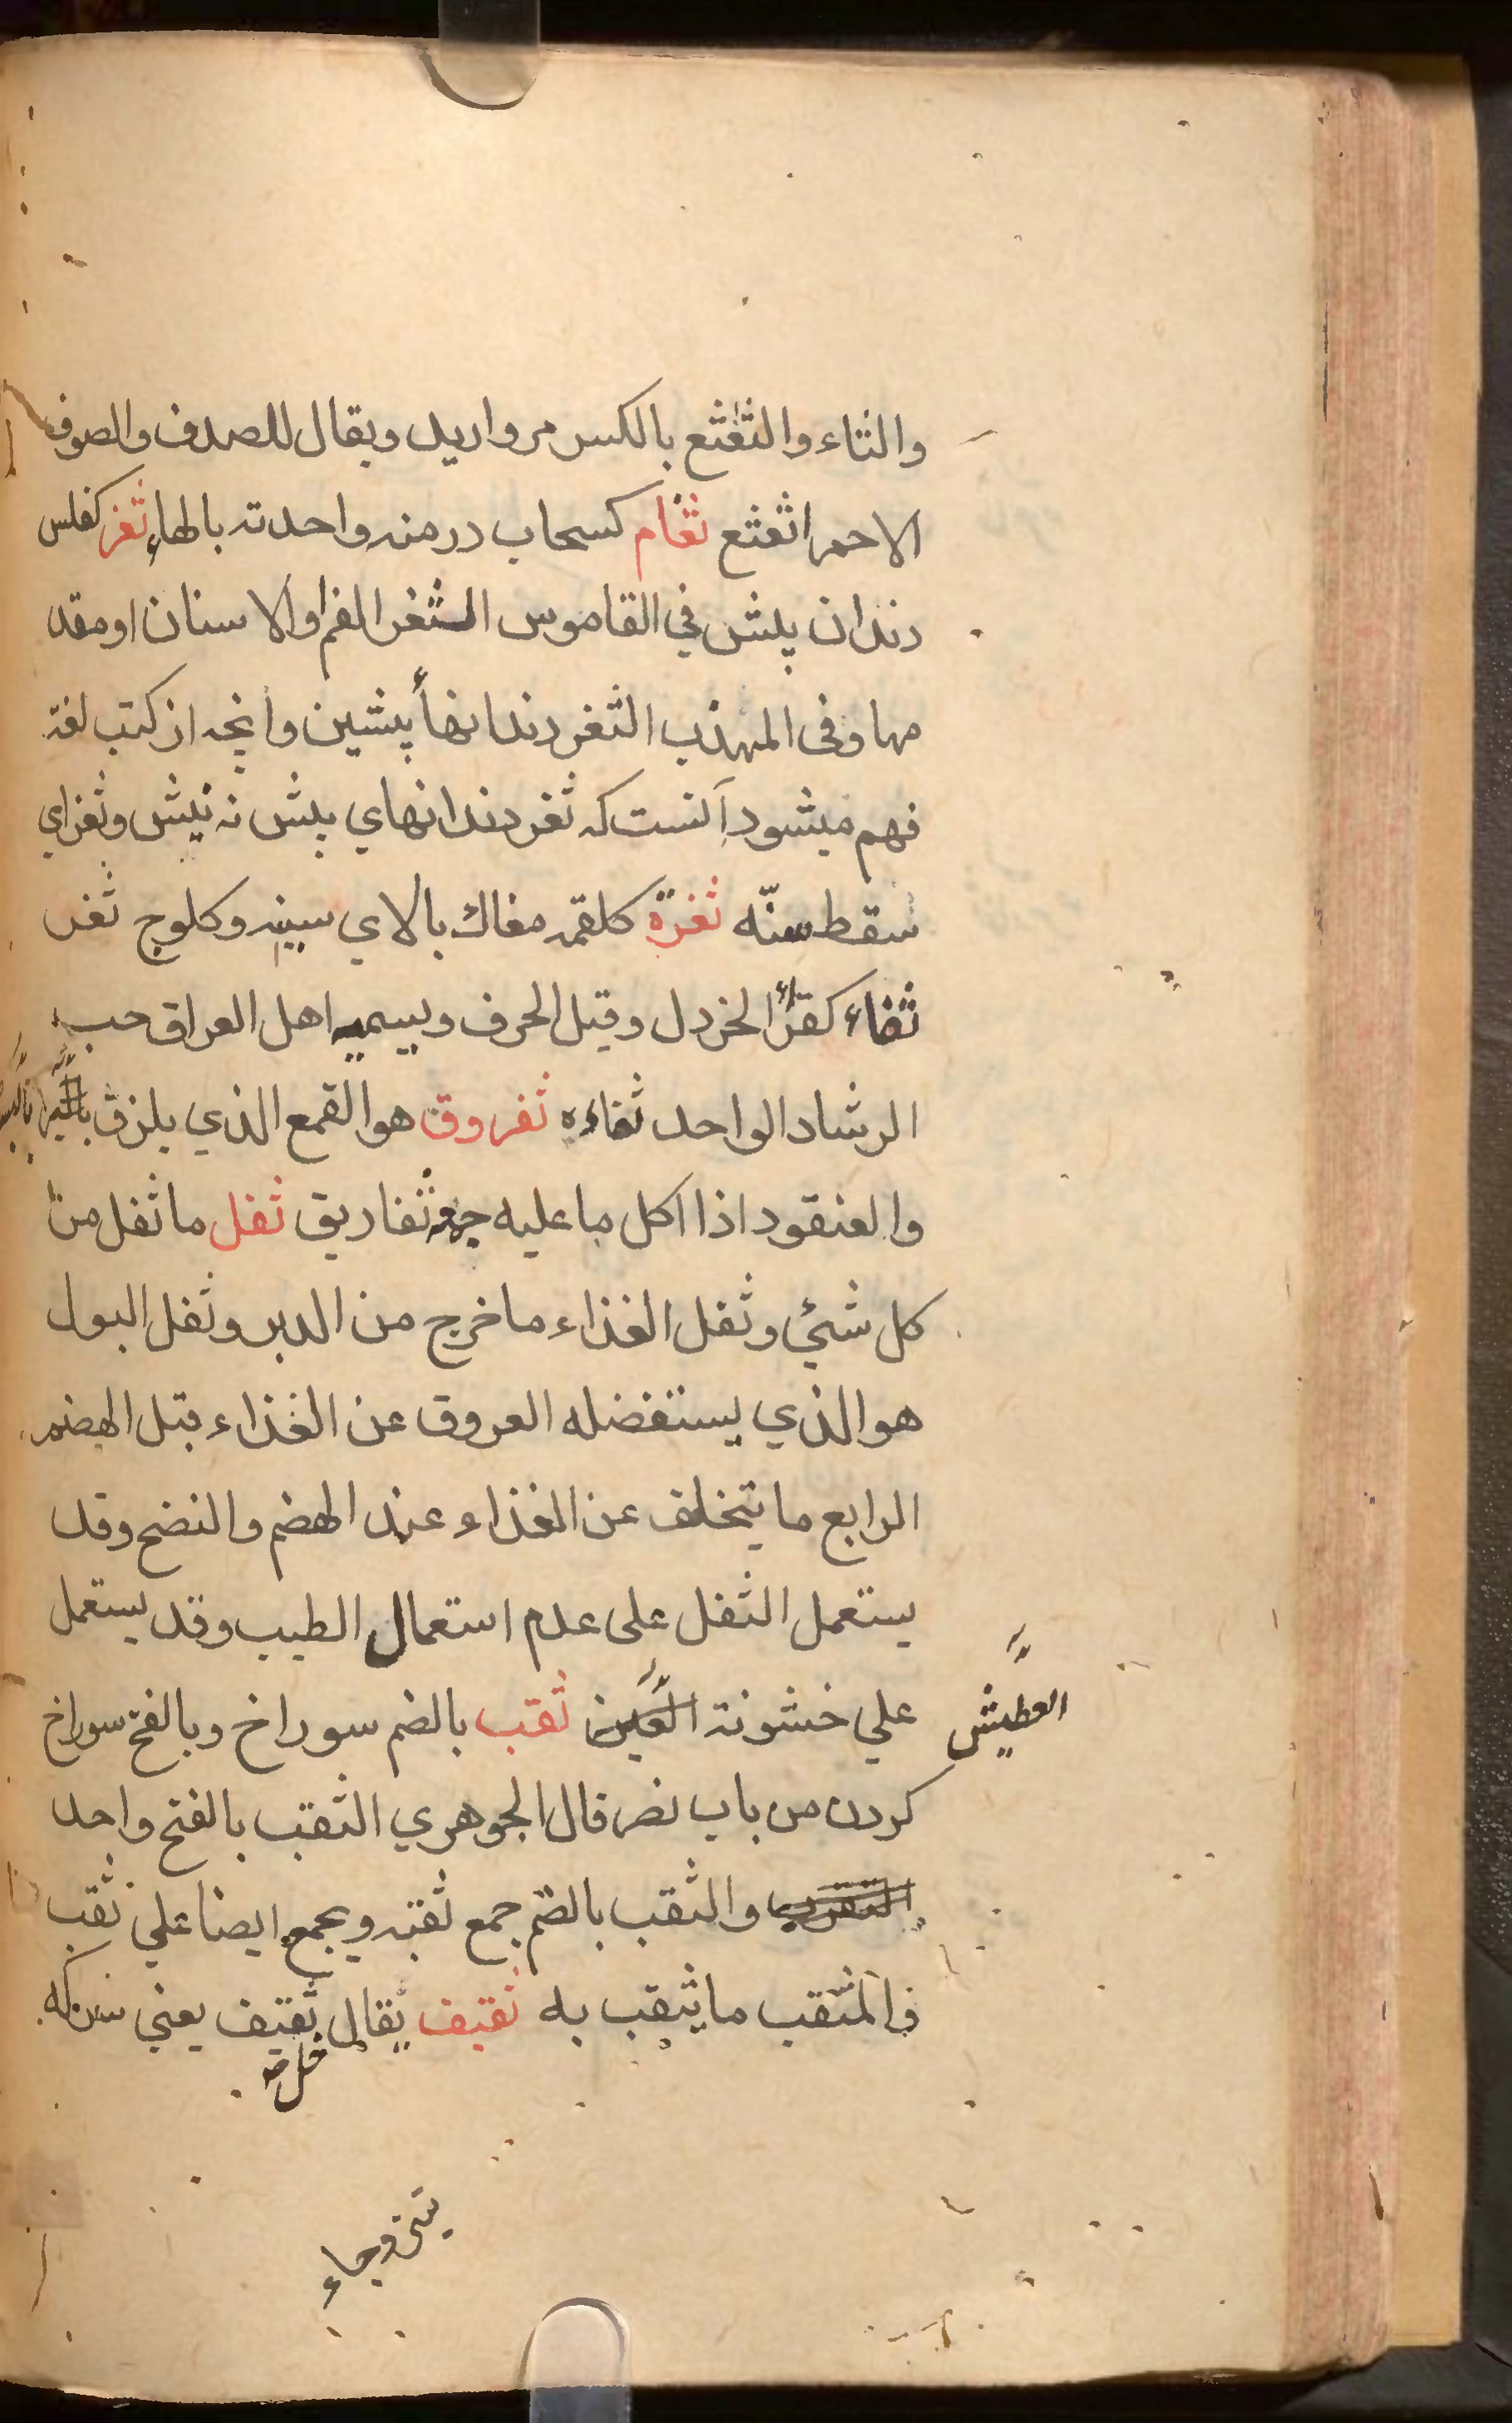 والثاء والثعثع بالكسر مروارید ويقال للصدف والصوف
الاحمر اثعثع ثغام كسحاب درمنه واحدته بالهاء ثغر كفلس
دندان پیش في القاموس الثغر الفم او الاسنان او مقد
مها وفى المهذب الثغر دندانهأ پیشین وانچه از كتب لغة
فهم میشود آنست كه ثغر دندانهاي پیش نه نیش وثغر اي
سقط سنّه ثغرة كلقمه مغاك بالاي سینه وكلوج ثغر
ثفاء كقرّاء الخردل وقيل الحرف ويسميه اهل العراق حب
الرشاد الواحد ثفاءه ثفروق هو القمع الذي يلزق
والعنقود اذا اكل ما عليه جمعه ثفاريق ثفل ما ثفل من
كل شئي وثفل الغذاء ما خرج من الدبر وثفل البول
هو الذي يستفضله العروق عن الغذاء قبل الهضم
الرابع ما يتخلف عن الغذاء عند الهضم والنضج وقد
يستعمل الثفل على عدم استعمال الطيب وقد يستعمل
علي خشونة ثقب بالضم سوراخ وبالفتح سوراخ
العطيش
كردن من باب نصر قال الجوهري الثقب بالفتح واحد
الثقوب والثقب بالضم جمع ثقبه ويجمع ايضا علي ثقب
فالمثقب ما يثقب به ثقيف يقال ثقيف يعني سركه